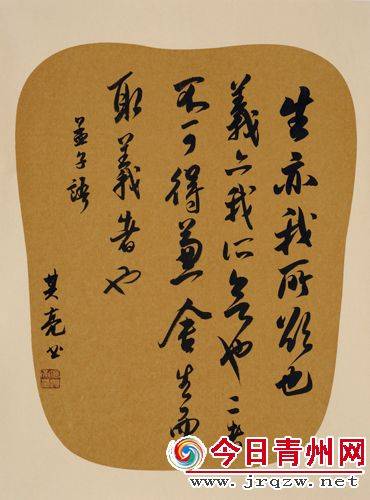 生亦我所欲也
義亦我所欲也二者
不可得兼舍生而
取義者也
孟子語
其亮书
今日青州网
www.jrqzw.net